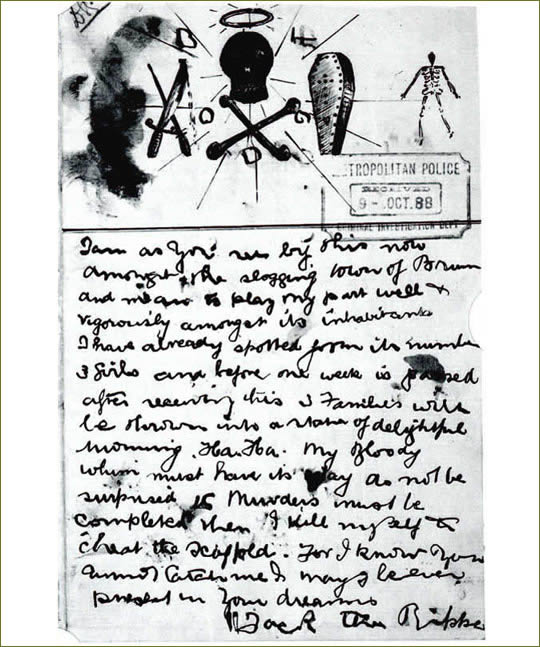 TROPOLITAN POLICE
RECEIVED
9 - OCT. 88
CRIMINAL INVESTIGATION DEPT
I am as you see by this now
amongst the slogging town of Brum
and mean to play my part well &
vigorously amongst its inhabitants
I have already spotted from its number
3 girls and before one week is passed
after receiving this 3 Families will
be thrown into a state of delightful
mourning. Ha. Ha. My Bloody
whim must have its way do not be
surprised 15 Murders must be
completed then I kill myself to
cheat the scaffold. For I know you
cannot catch me & may I be ever
present in your dreams
Jack the Ripper